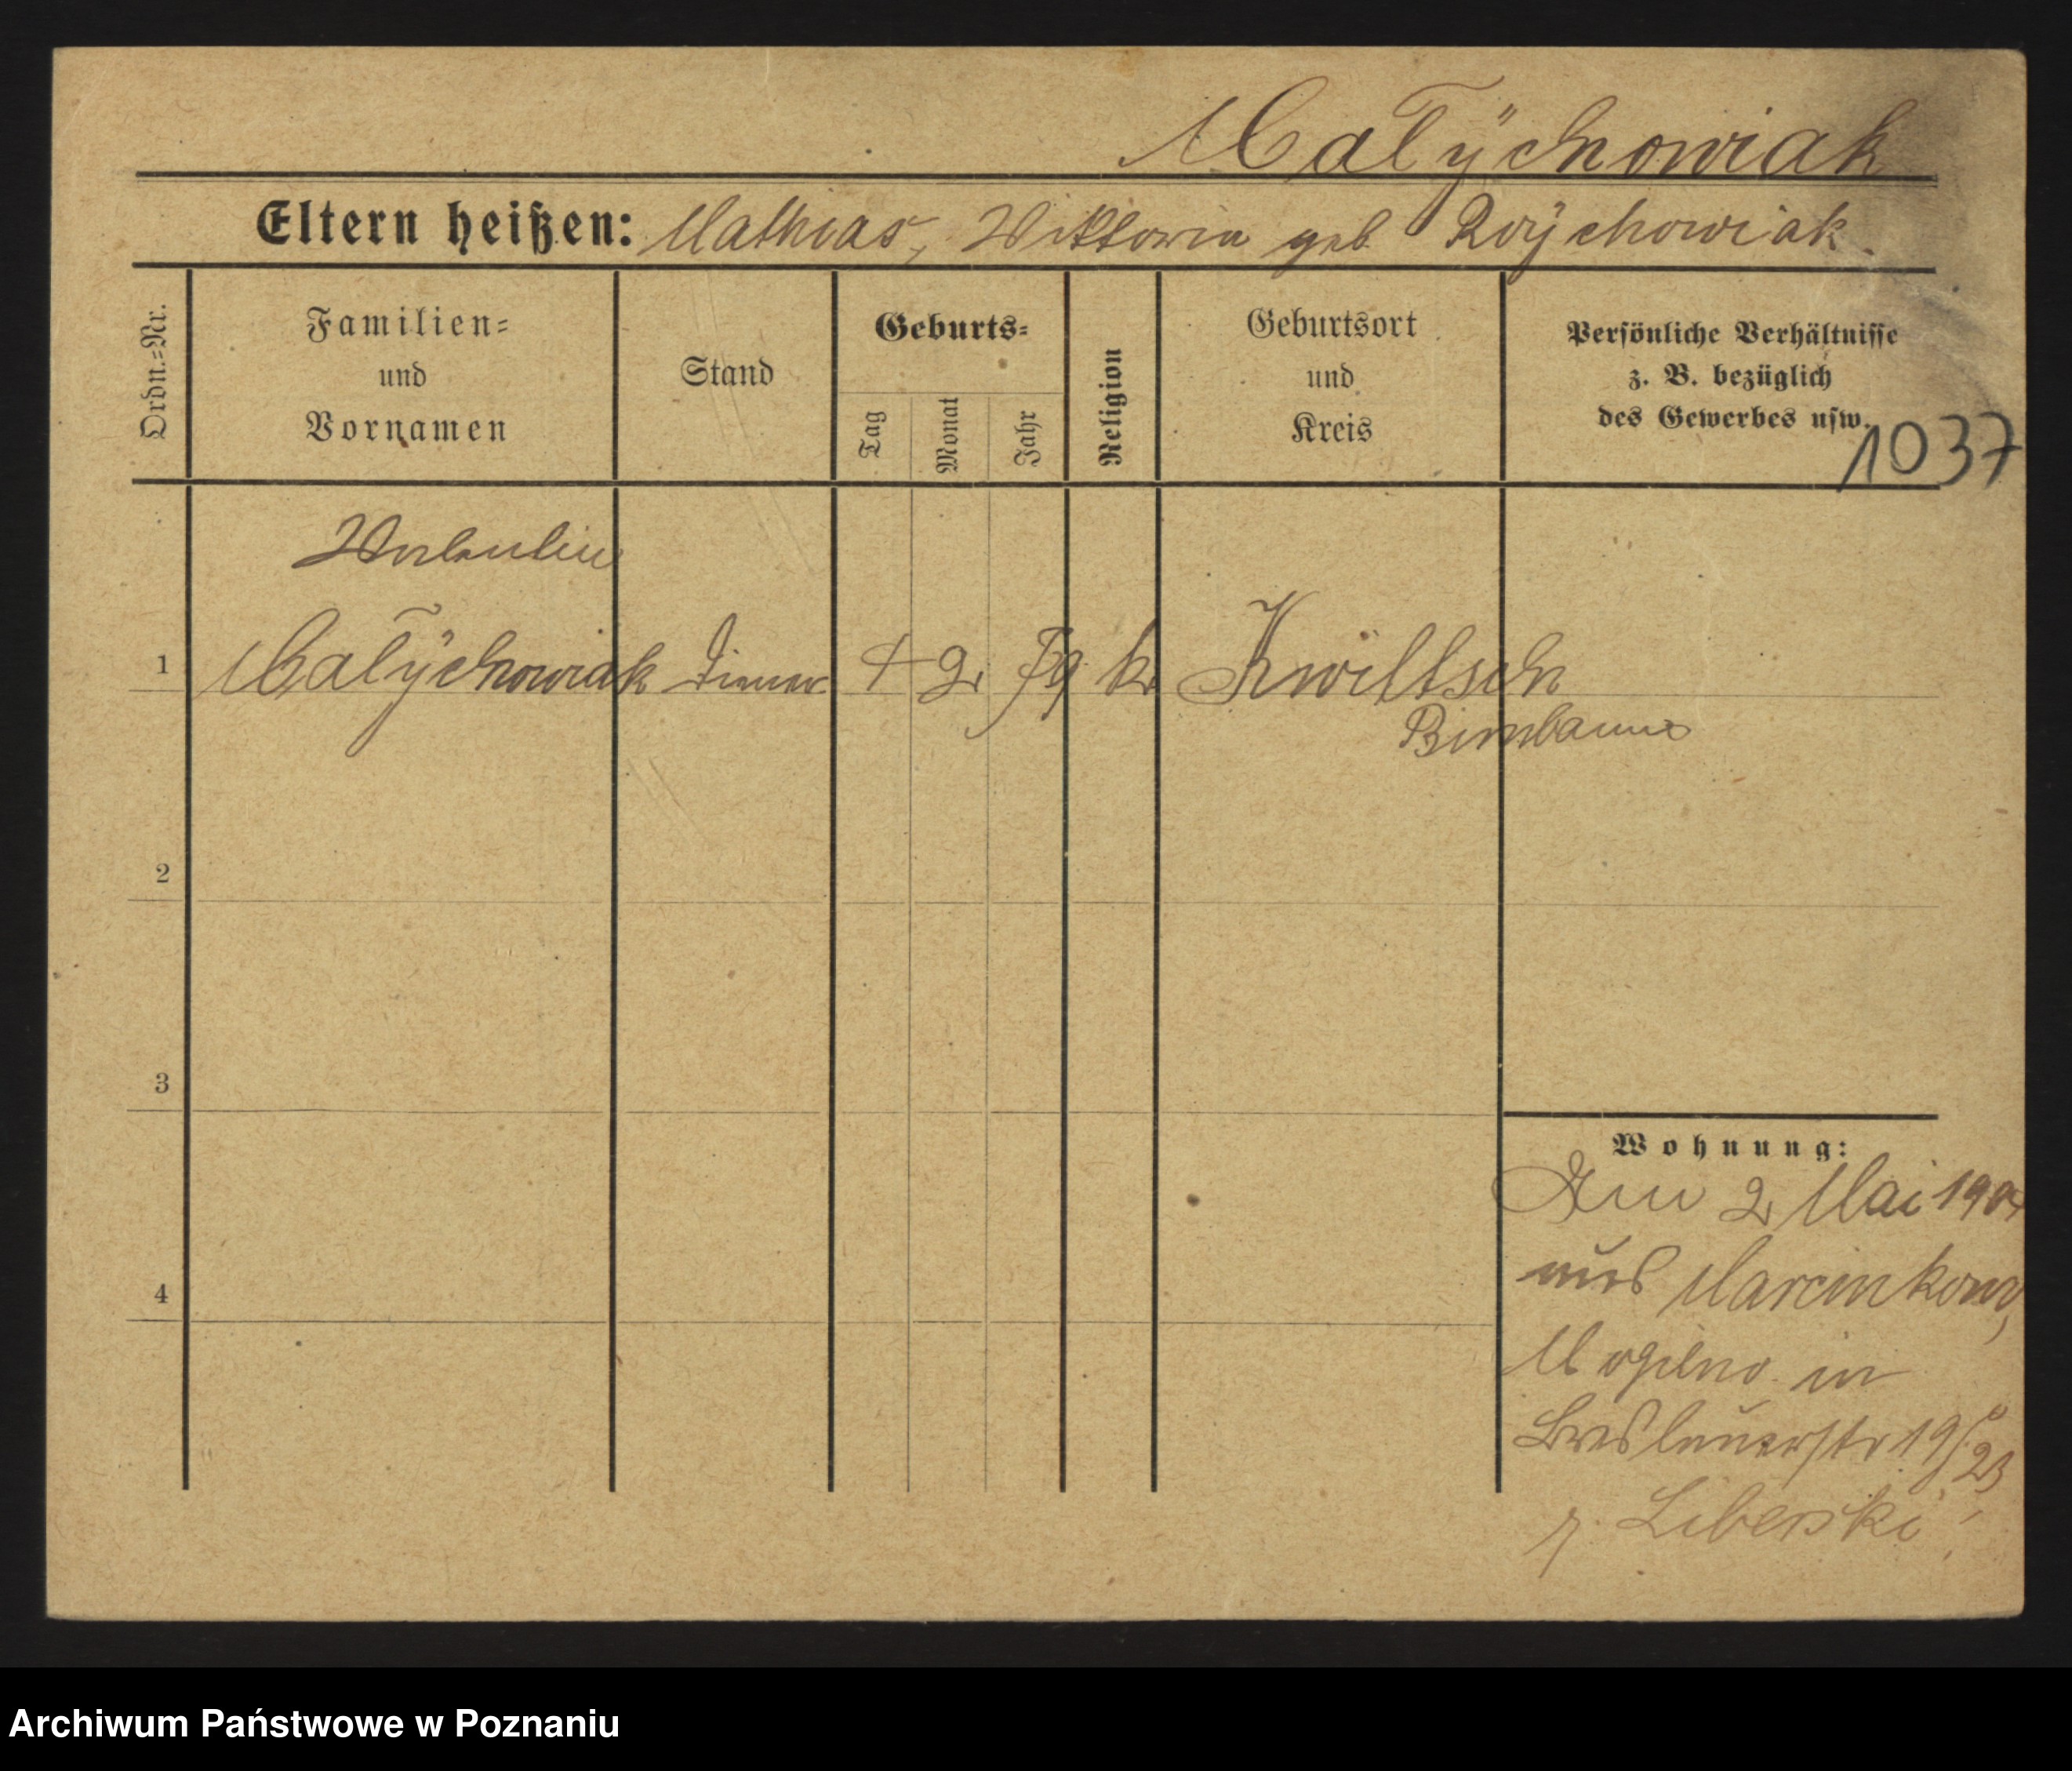 Małÿchowiak
Eltern heißen: Mathias, Wiktoria geb Roÿchowiak
Ordn.-Nr.
Familien-
und
Vornamen
Stand
Geburts-
Tag
Monat
Jahr
Religion
Geburtsort
und
Kreis
Persönliche Verhältnisse
z. B. bezüglich
des Gewerbes usw.
1037
1 Małÿchowiak Diener 4 2 79 k. Kwiltsch
Birnbaum
2
3
4
Wohnung:
Am 2 Mai 1904
aus Marcinkowo,
Mogilno in
Breslauerstr 19
Liberski
Archiwum Państwowe w Poznaniu